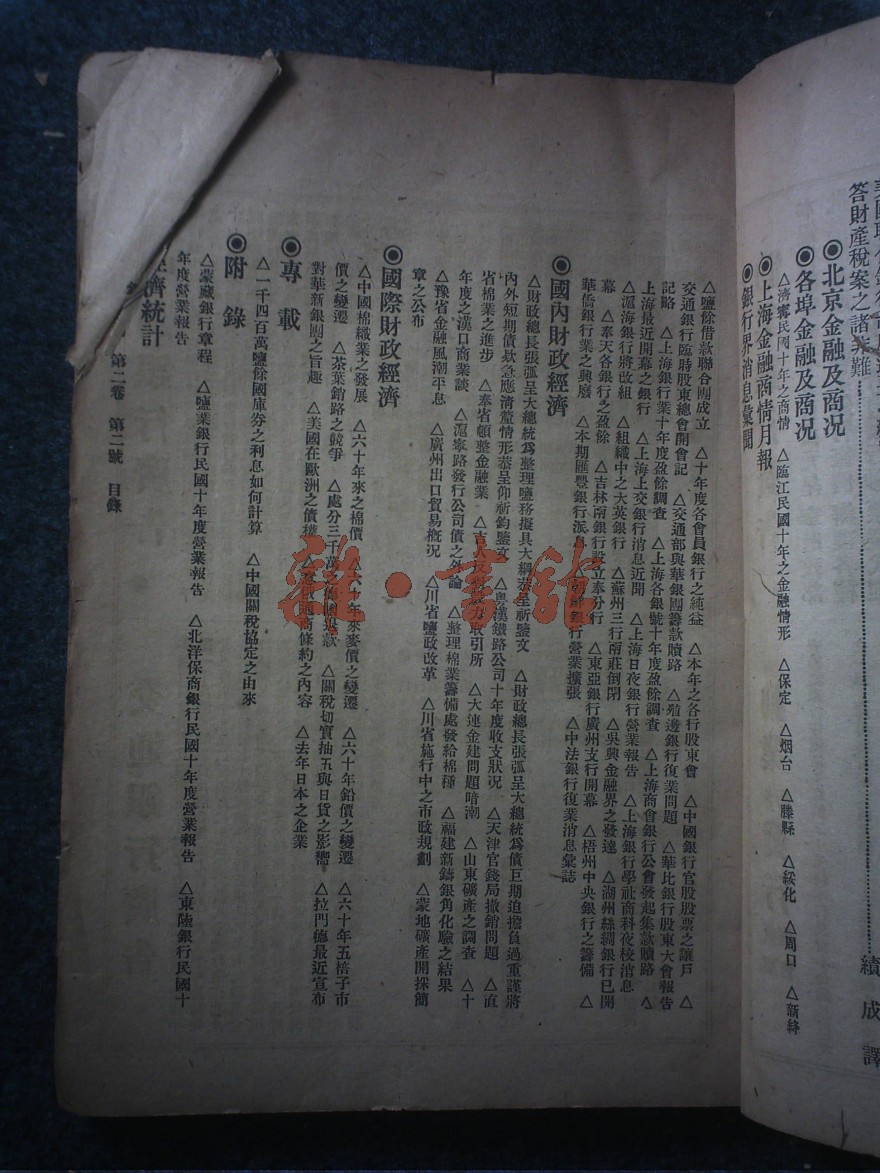 答財產稅案之諸非難
績成譯
◉北京金融及商况
◉各埠金融及商况
△濟寧民國十年之商情 △臨江民國十年之金融情形 △保定 △烟台 △滕縣 △綏化 △周口 △新絳
◉上海金融商情月報
◉銀行界消息彙聞
△鹽餘借款聯合團成立 △十年度各會員銀行之純益 △本年之各行股東會 △中國銀行官股股票之讓戶 △
交通銀行臨時股東總會開會記 △交通部與華銀團籌款贖路 △殖邊銀行復業問題 △華比銀行股東大會報告
記略 △上海銀行業十年度盈餘調查 △上海各銀號十年度盈餘調查 △上海商會銀行公會發起集款贖路 △
上海最近開幕之銀行 △上海上交銀行消息近聞 △上海日夜銀行營業報告 △上海銀行學社商科夜校消息
△滬海銀行將改組 △組織中之大英銀行 △蘇州三行南莊倒閉 △吳興金融界之發達 △湖州絲綢銀行已開
幕 △奉天各銀行之盈餘 △吉林南銀行設立奉分行 △東亞銀行廣州支行開幕 △梧州中央銀行之籌備 △
華僑銀行業之興廢 △本期匯豐銀行派息 朝鮮銀行營業擴張 △中法銀行復業消息彙誌
◉國內財政經濟
△財政總長張弧呈大總統爲整理鹽務擬具大綱恭呈祈鑒文 △財政總長張弧呈大總統爲債巨期迫擔負過重謹將
內外短期債欵急應清釐情形恭呈仰祈鈞鑒文 △粵漢鐵路公司十年度收支狀况 △天津官錢局撤銷問題 △直
省棉業之進步 △奉省頓整金融業 △吉人反對 取引所 △大連金建問題暗潮 △山東礦產之調查 △十
年度之漢口商業談 △滬寧路發行公司債之外論 △整理棉業籌備處發給棉種 △福建新鑄銀角化驗之結果
△豫省金融風潮平息 △廣州出口貿易概况 △川省鹽政改革 △川省施行中之市政規劃 △蒙地礦產開採簡
章之公布
◉國際財政經濟
△中國棉織業之發展 △六十年來之棉價 △六十年來麥價之變遷 △六十年鉛價之變遷 △六十年五棓子市
價之變遷 △茶葉銷路之競爭 △處分三千萬之德國退款 △關稅切實抽五與日貨之影響 △拉門德最近宣布
對華新銀團之旨趣 △美國在歐洲之債權 通商條約之內容 △去年日本之企業
◉專載
△一千四百萬鹽餘國庫券之利息如何計算 △中國關稅協定之由來
◉附錄
△蒙藏銀行章程 △鹽業銀行民國十年度營業報告 △北洋保商銀行民國十年度營業報告 △東陸銀行民國十
年度營業報告
經濟統計
第二卷 第二號 目錄
雜·書計